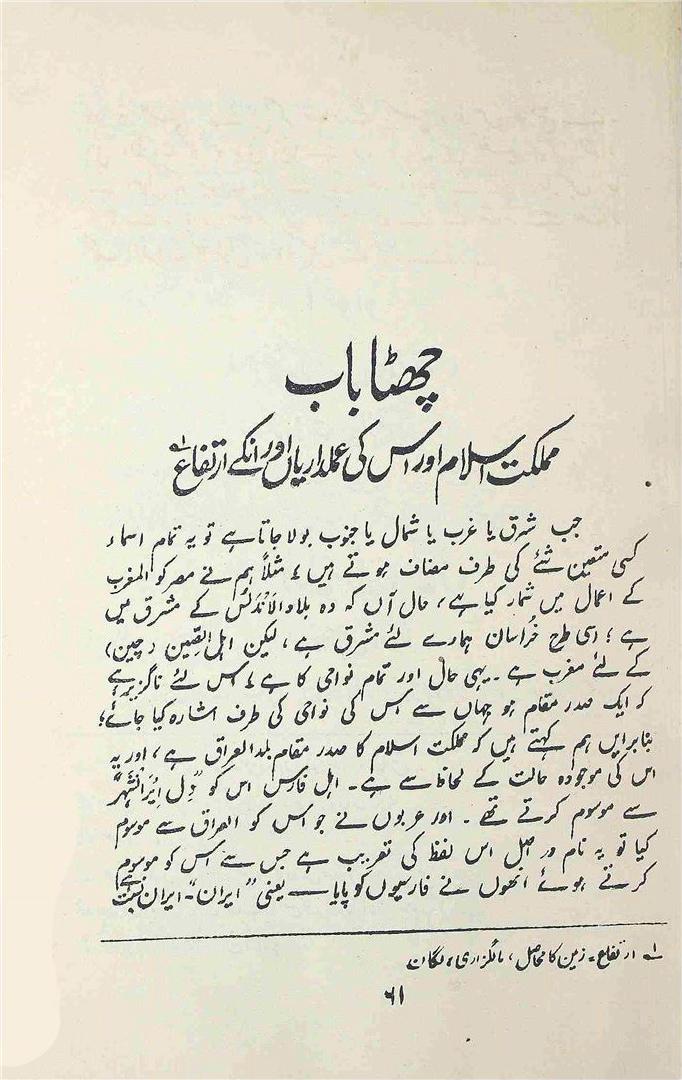 چھٹا باب
مملکت اسلام اور اس کی عملداریاں اور انکے ارتفاع لہ
جب شرق یا غرب یا شمال یا جنوب بولا جاتا ہے تو یہ تمام اسماء
کسی متعین شئے کی طرف مضاف ہوتے ہیں ؛ مثلاً ہم نے مصر کو المغرب
کے اعمال میں شمار کیا ہے ، حال آں کہ وہ بلاد الاندلس کے مشرق میں
ہے ؛ اسی طرح خُراسان ہمارے لئے مشرق ہے ، لیکن اہل الصّین (چین)
کے لئے مغرب ہے ۔ یہی حال اور تمام نواحی کا ہے ؛ اس لئے ناگزیر ہے
کہ ایک صدر مقام ہو جہاں سے اس کی نواحی کی طرف اشارہ کیا جائے ؛
بنابرایں ہم کہتے ہیں کہ مملکت اسلام کا صدر مقام بلد العراق ہے ، اور یہ
اس کی موجودہ حالت کے لحاظ سے ہے ۔ اہل فارس اس کو ”دِل اِیْرانْشَہْر“
سے موسوم کرتے تھے ۔ اور عربوں نے جو اس کو العراق سے موسوم
کیا تو یہ نام در اصل اس لفظ کی تعریب ہے جس سے اس کو موسوم
کرتے ہوئے انھوں نے فارسیوں کو پایا — یعنی ”ایران“ ۔ ایران نسبت ہے
لہ ارتفاع ۔ زمین کا محاصل ، مالگزاری ، لگان
۶۱